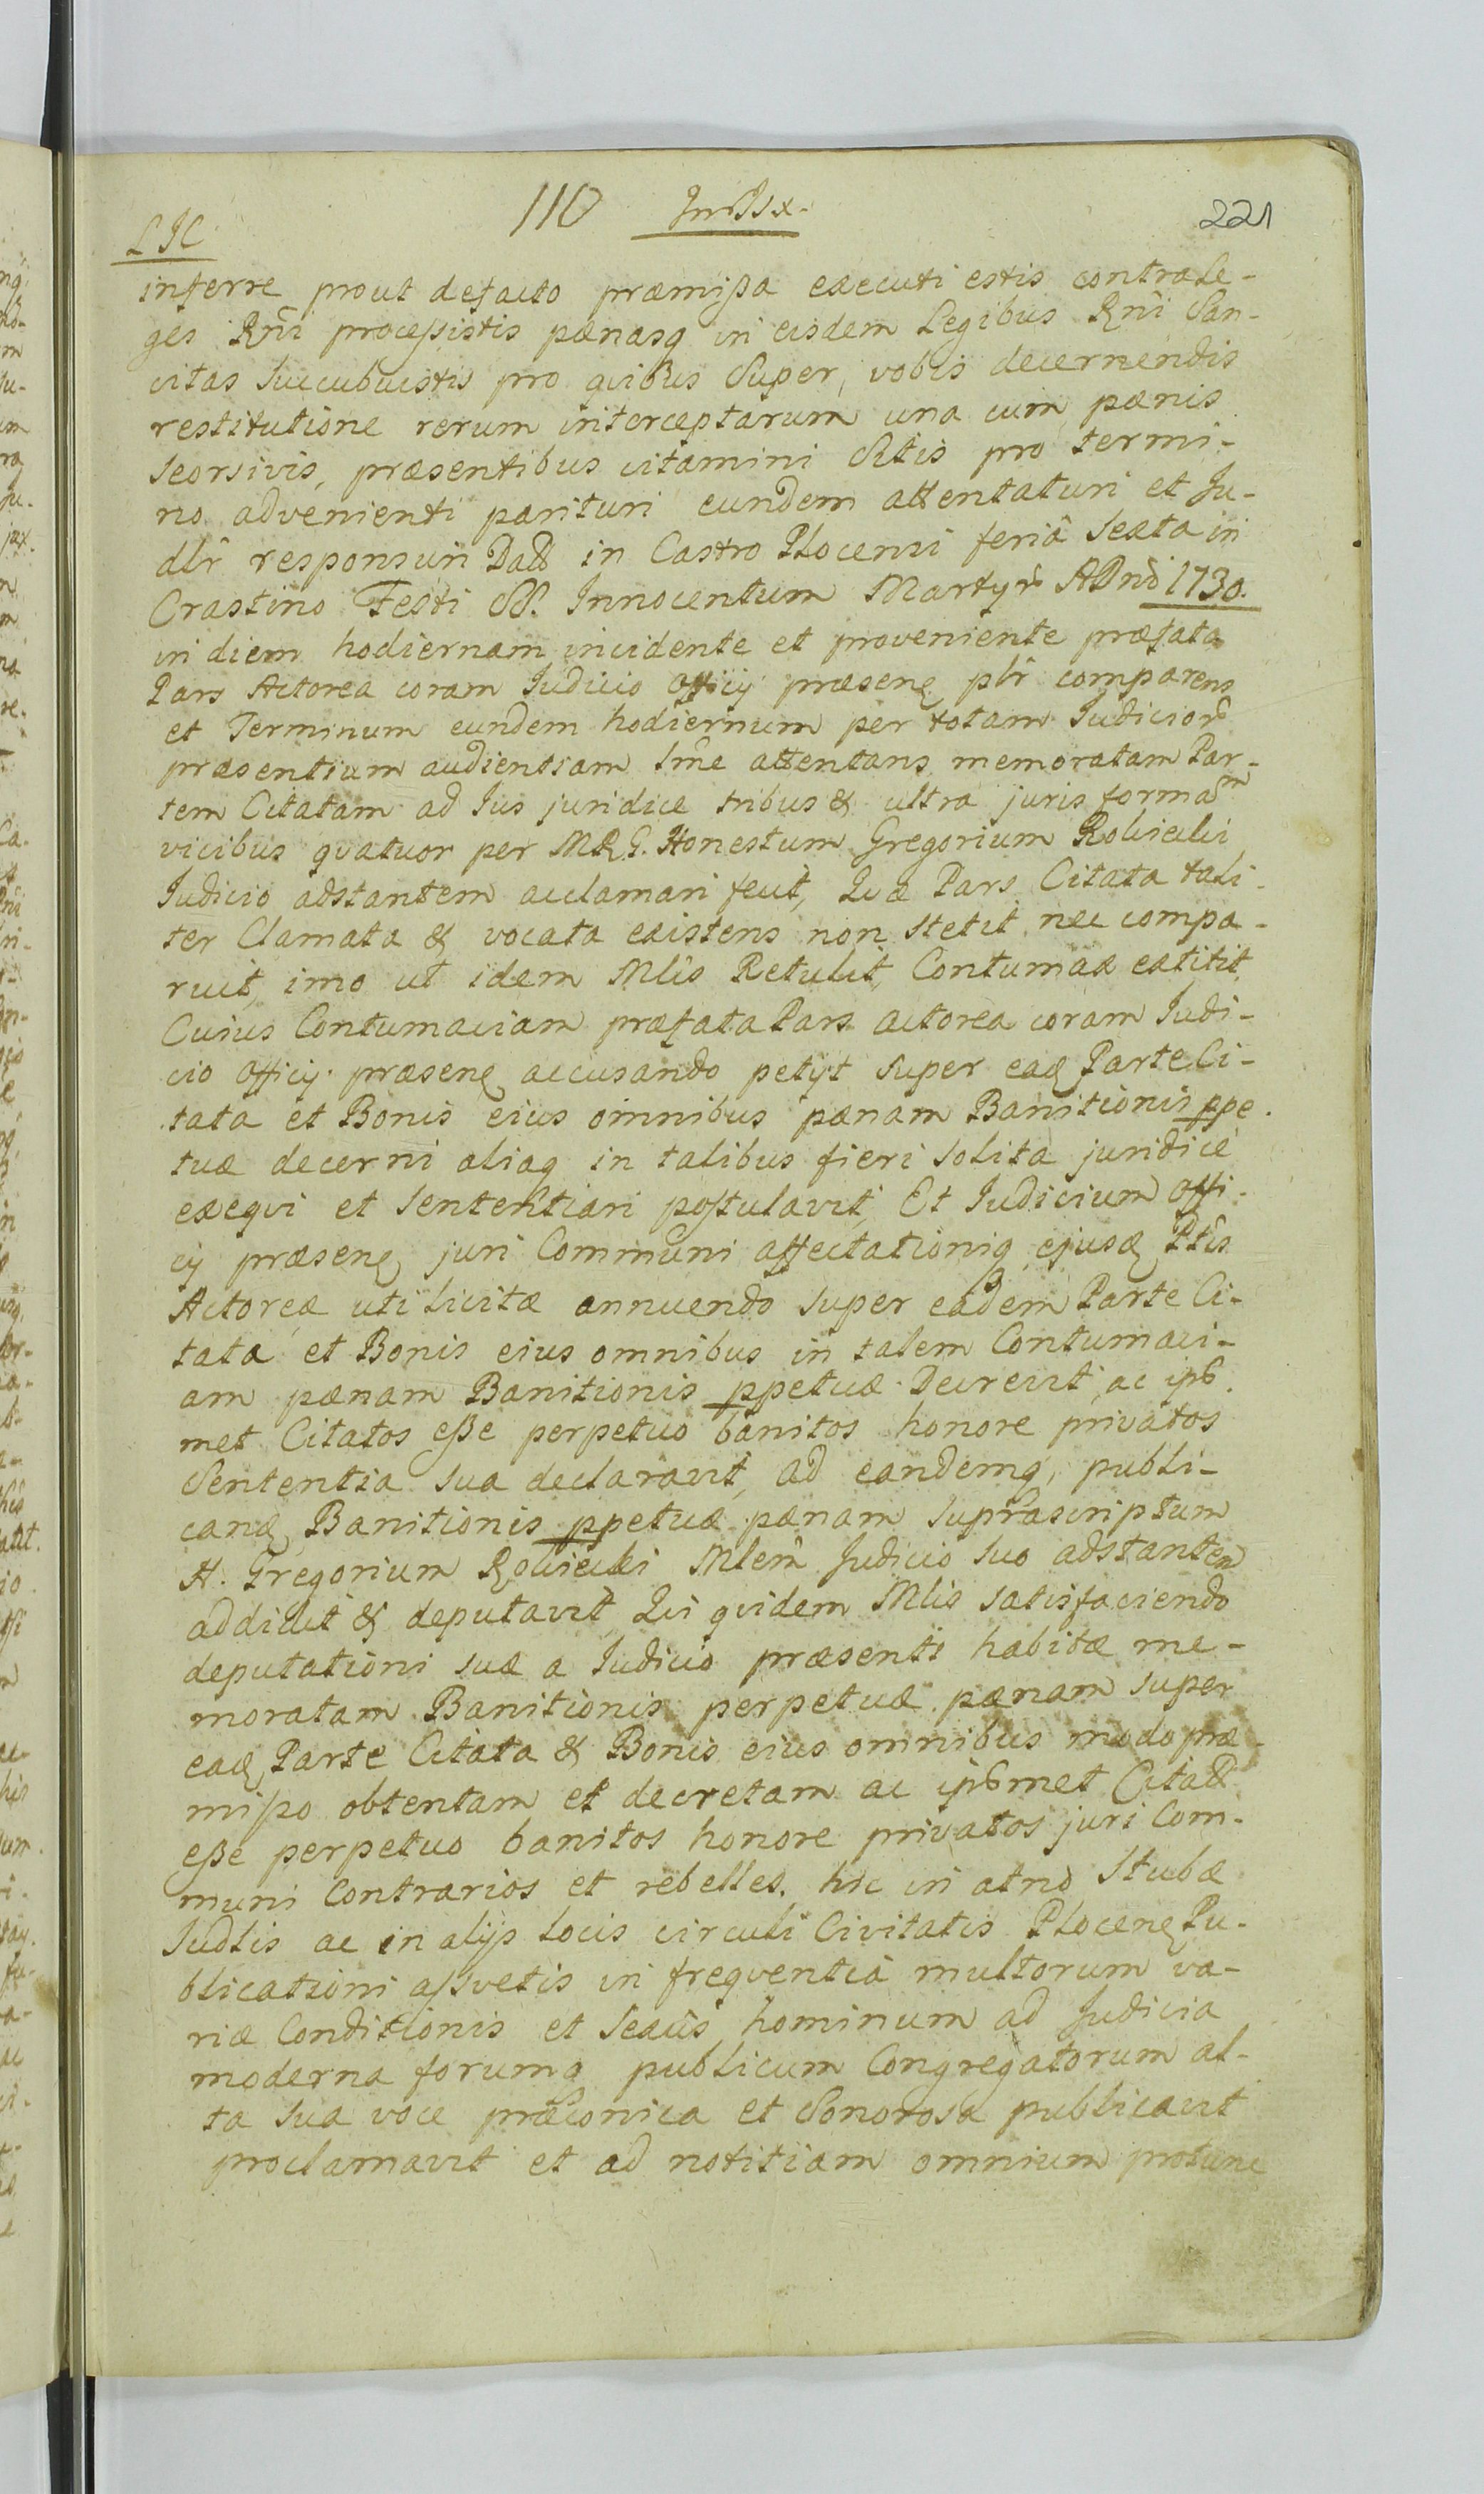 110
221
LJC
inferre prout defacto præmissa executi estis contra Le-
ges Rñi processistis pænasq in eisdem Legibus Rñi San-
citas succubuistis pro qvibus super, vobis decernendis
restitutione rerum interceptarum una cum pænis
seorsivis, præsentibus citamini Sitis pro termi-
no advenienti parituri eundem attentaturi et Ju-
dlr responsuri Datt in Castro Plocensi feriâ Sexta in
Crastino Festi SS. Innocentum Martyr ADnô 1730.
in diem hodiernam incidente et proveniente præfata
Pars Actorea coram Iudicio Officij præsenẽ plr comparens
et Terminum eundem hodiernum per totam Iudicior
præsentium audientiam Sme attentans memoratam Par-
tem Citatam ad Ius juridice tribus & ultra juris formam
vicibus qvatuor per MRG. Honestum Gregorium Rokicki
Iudicio adstantem acclamari fecit, Qvæ Pars Citata tali-
ter Clamata & vocata existens non stetit nec compa-
ruit, imo ut idem Mlis Retulit, Contumax extitit
Cuius Contumaciam præfata Pars actorea coram Iudi-
cio Officij præsenẽ accusando petijt super eaḍ Parte Ci-
tata et Bonis eius omnibus pænam Banitionis ppe
tuæ decerni aliaq in talibus fieri solita juridicè
exeqvi et sententiari postulavit, Et Iudicium Offi-
cij præsenẽ juri Communi affectationiq ejusḍ Ptis
Actoreæ uti licitæ annuendo super eadem Parte Ci-
tata et Bonis eius omnibus in talem Contumaci-
am pænam Banitionis ppetuæ Decrevit, ac ips
met Citatos esse perpetuo banitos honore privatos
Sententia sua declaravit, ad eandemq, publi-
canḍ Banitionis ppetuæ pænam suprascriptum
H. Gregorium Rokicki Mlem Judicio suo adstantem
addidit & deputavit Qvi qvidem Mlis satisfaciendo
deputationi suæ a Iudicio præsenti habitæ me-
moratam Banitionis perpetuæ pænam super
eaḍ Parte Citata & Bonis eius omnibus modo præ-
misso obtentam et decretam ac ipsmet Citatt
esse perpetuo banitos honore privatos juri Com-
muni Contrarios et rebelles, hic in atrio Stubæ
Iudlis ac in alijs locis circuli Civitatis Plocenẽ Pu-
blicationi assvetis in freqventiâ multorum va-
riæ Conditionis et Sexûs hominum ad Judicia
moderna forumq publicum Congregatorum al-
ta sua voce præconica et Sonorosa publicavit
proclamavit et ad notitiam omnium protunc